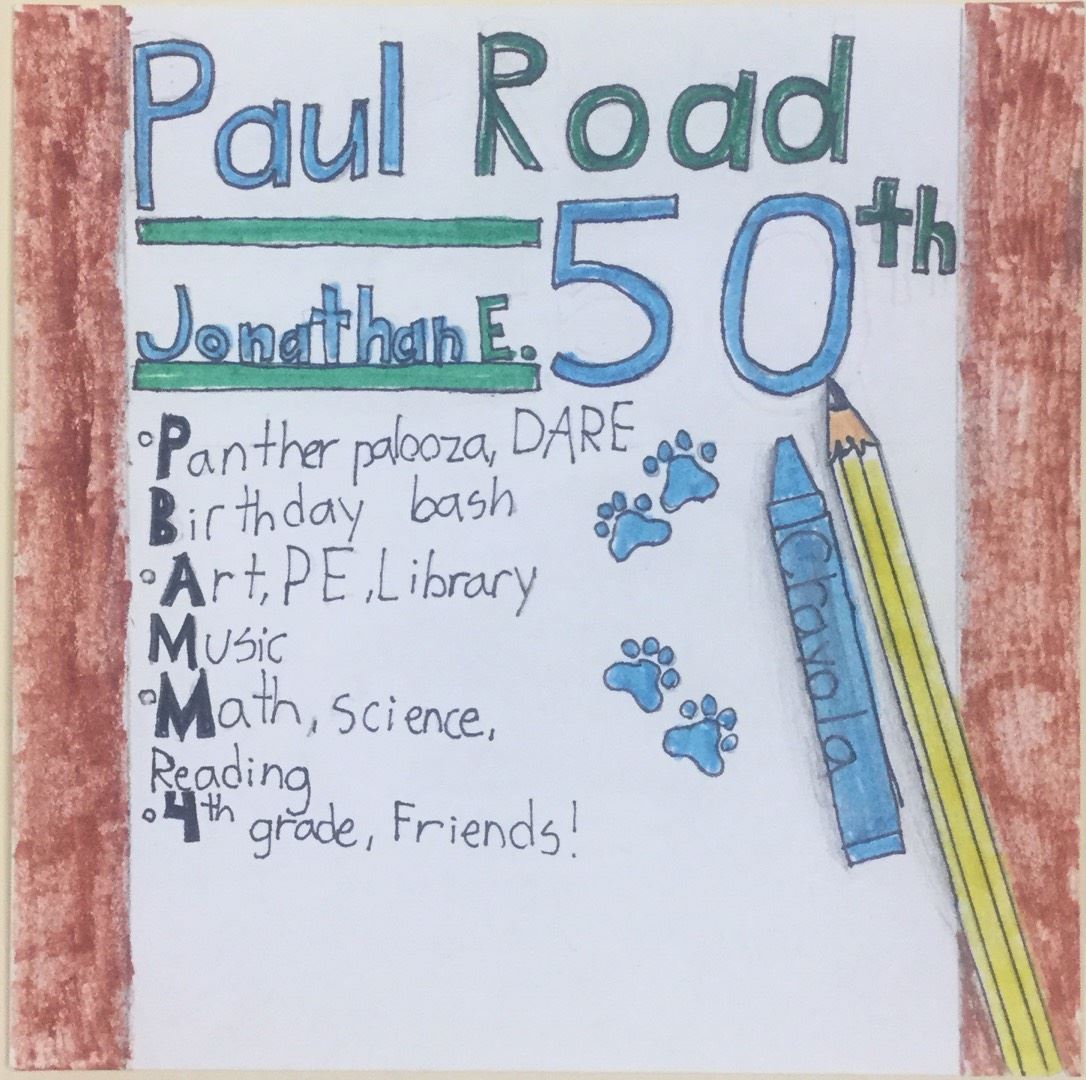 Paul Road
50th
Jonathan E.
Panther palooza, DARE
Birthday bash
Art, PE, Library
Music
Math, science,
Reading
4th grade, Friends!
Crayola